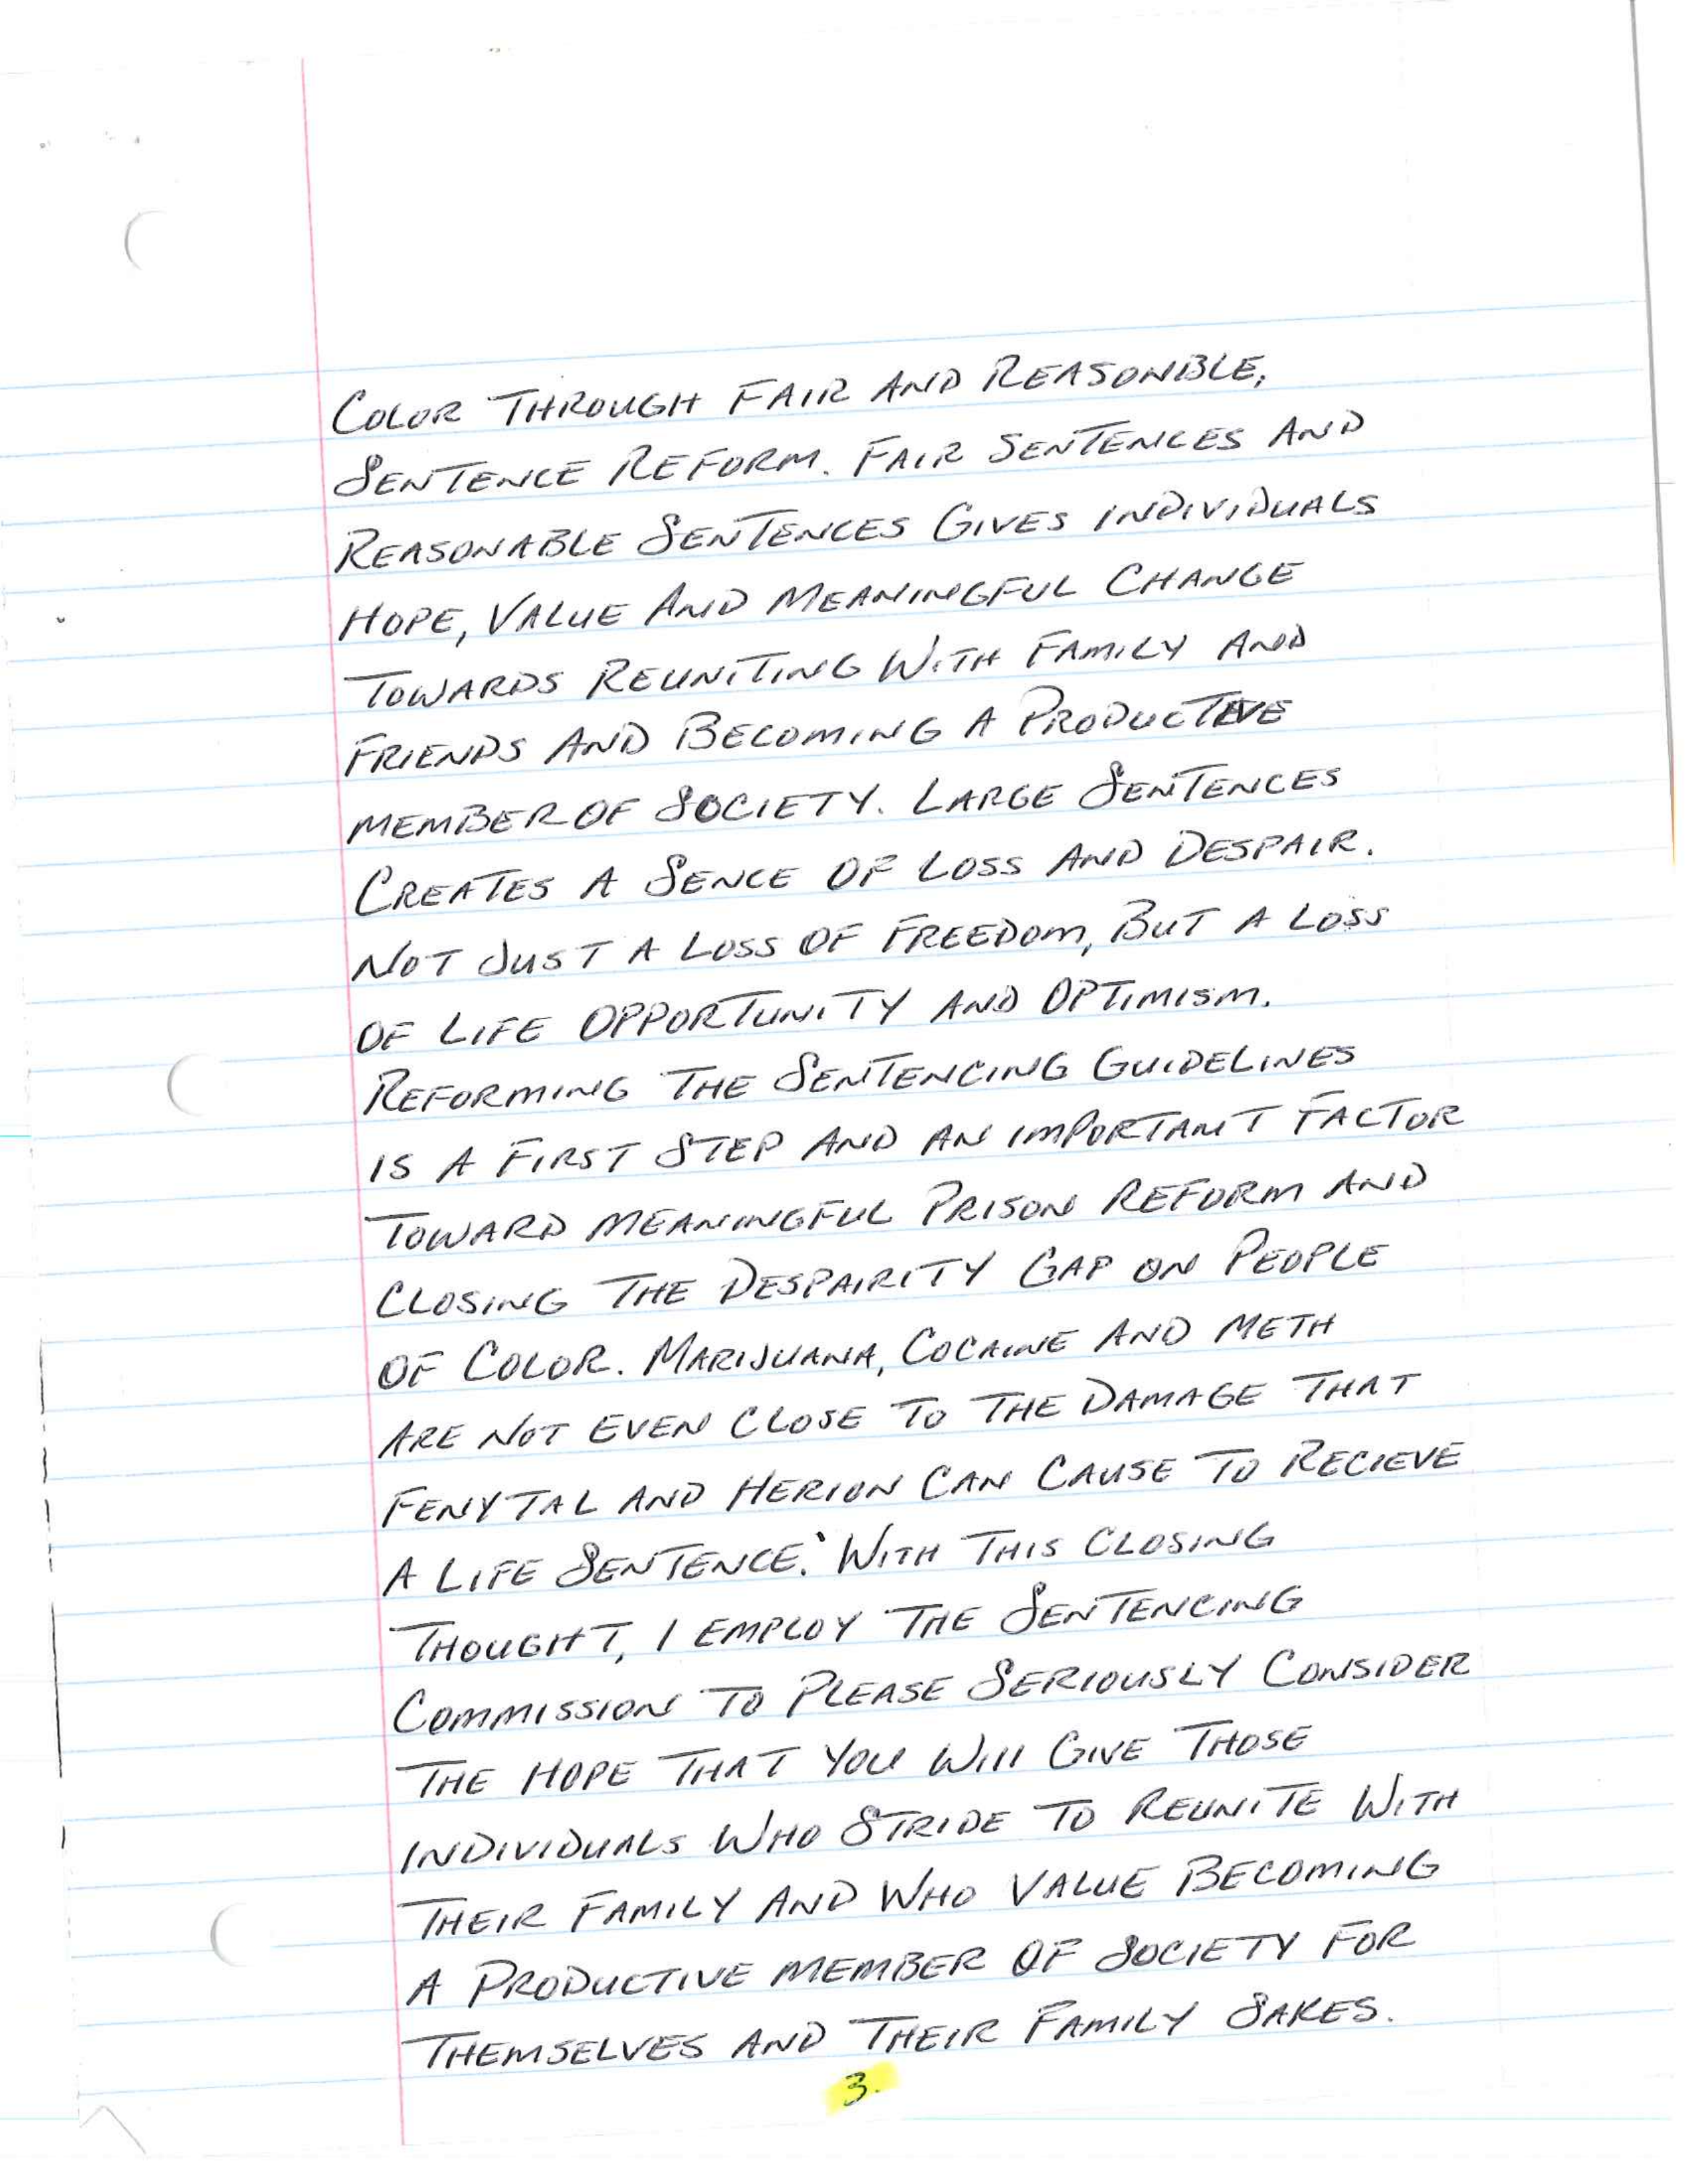 COLOR THROUGH FAIR AND REASONBLE,
SENTENCE REFORM. FAIR SENTENCES AND
REASONABLE SENTENCES GIVES INDIVIDUALS
HOPE, VALUE AND MEANINGFUL CHANGE
TOWARDS REUNITING WITH FAMILY AND
FRIENDS AND BECOMING A PRODUCTIVE
MEMBER OF SOCIETY. LARGE SENTENCES
CREATES A SENCE OF LOSS AND DESPAIR.
NOT JUST A LOSS OF FREEDOM, BUT A LOSS
OF LIFE OPPORTUNITY AND OPTIMISM.
REFORMING THE SENTENCING GUIDELINES
IS A FIRST STEP AND AN IMPORTANT FACTOR
TOWARD MEANINGFUL PRISON REFORM AND
CLOSING THE DESPAIRITY GAP ON PEOPLE
OF COLOR. MARIJUANA, COCAINE AND METH
ARE NOT EVEN CLOSE TO THE DAMAGE THAT
FENYTAL AND HERION CAN CAUSE TO RECIEVE
A LIFE SENTENCE. WITH THIS CLOSING
THOUGHT, I EMPLOY THE SENTENCING
COMMISSION TO PLEASE SERIOUSLY CONSIDER
THE HOPE THAT YOU WILL GIVE THOSE
INDIVIDUALS WHO STRIDE TO REUNITE WITH
THEIR FAMILY AND WHO VALUE BECOMING
A PRODUCTIVE MEMBER OF SOCIETY FOR
THEMSELVES AND THEIR FAMILY SAKES.
3.